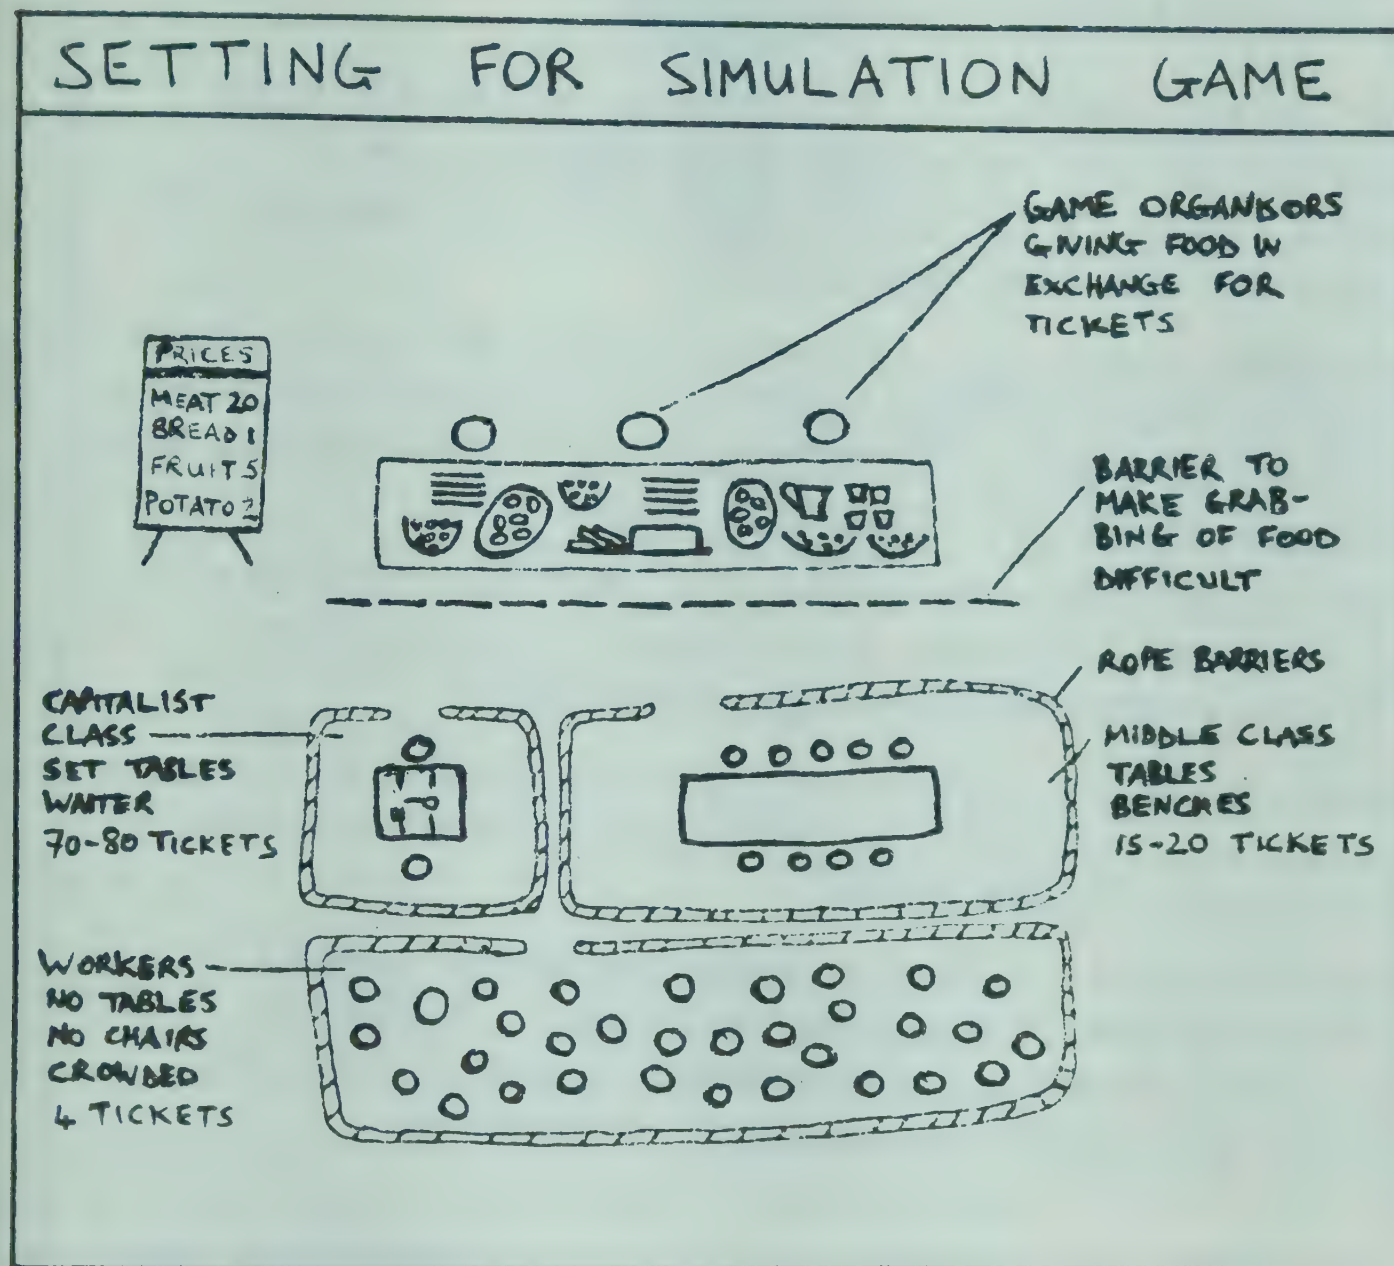 SETTING FOR SIMULATION GAME
GAME ORGANISORS
GIVING FOOD IN
EXCHANGE FOR
TICKETS
PRICES
MEAT 20
BREAD 1
FRUIT 5
POTATO 2
BARRIER TO
MAKE GRAB-
BING OF FOOD
DIFFICULT
ROPE BARRIERS
CAPITALIST
CLASS
SET TABLES
WAITER
70-80 TICKETS
MIDDLE CLASS
TABLES
BENCHES
15-20 TICKETS
WORKERS
NO TABLES
NO CHAIRS
CROWDED
4 TICKETS